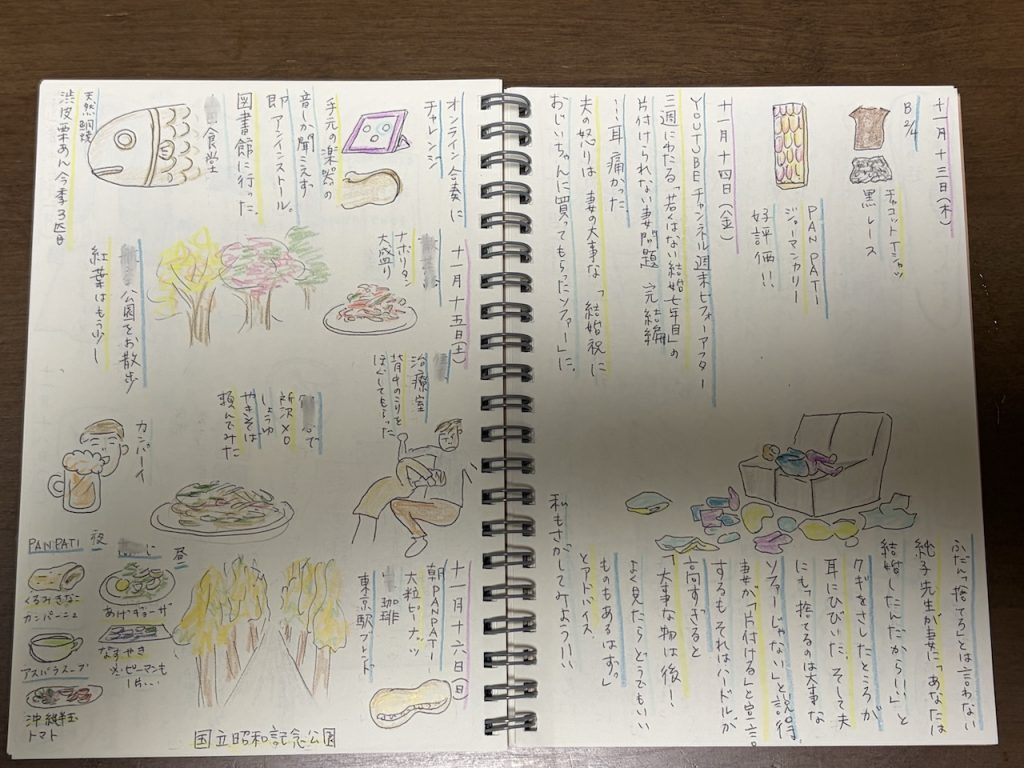 十一月十三日(木)
B2/4
チャコットTシャツ
黒レース
PANPATI
ジャーマンカリー
好評価!!
十一月十四日(金)
YOUTUBEチャンネル週末ビフォーアフター
三週にわたる「若くはない結婚七年目」の
片付けられない妻問題 完結編
…耳痛かった。
夫の怒りは 妻の大事な「結婚祝に
おじいちゃんに買ってもらったソファー」に。
ふだん「捨てる」とは言わない
純子先生が妻に「あなたは
結婚したんだから…」と
クギをさしたところが
耳にひびいた。そして夫
にも「捨てるのは大事な
ソファーじゃない」と説得。
妻が「片付ける」と宣言。
するも それはハードルが
高すぎると
「大事な物は後!
よく見たらどうでもいい
ものもあるはず。」
とアドバイス。
私もさがしてみよう!!!
十一月十五日(土)
オンライン合奏に
チャレンジ
手元の楽器の
音しか聞こえず
即アンインストール。
図書館に行った。
食堂
天然鯛焼
渋皮栗あん今季3匹目
ナポリタン
大盛り
公園をお散歩
紅葉はもう少し
治療室
背中のこりを
ほぐしてもらった
で
所沢XO
しょうゆ
やきそば
頼んでみた
カンパーイ
十一月十六日(日)
朝PANPATI
大粒ピーナッツ
珈琲
東京駅ブレンド
国立昭和記念公園
昼
あげギョーザ
なすやき
ピーマンも
1片…
夜
PANPATI
くるみきなこ
カンパーニュ
アスパラスープ
沖縄
トマト